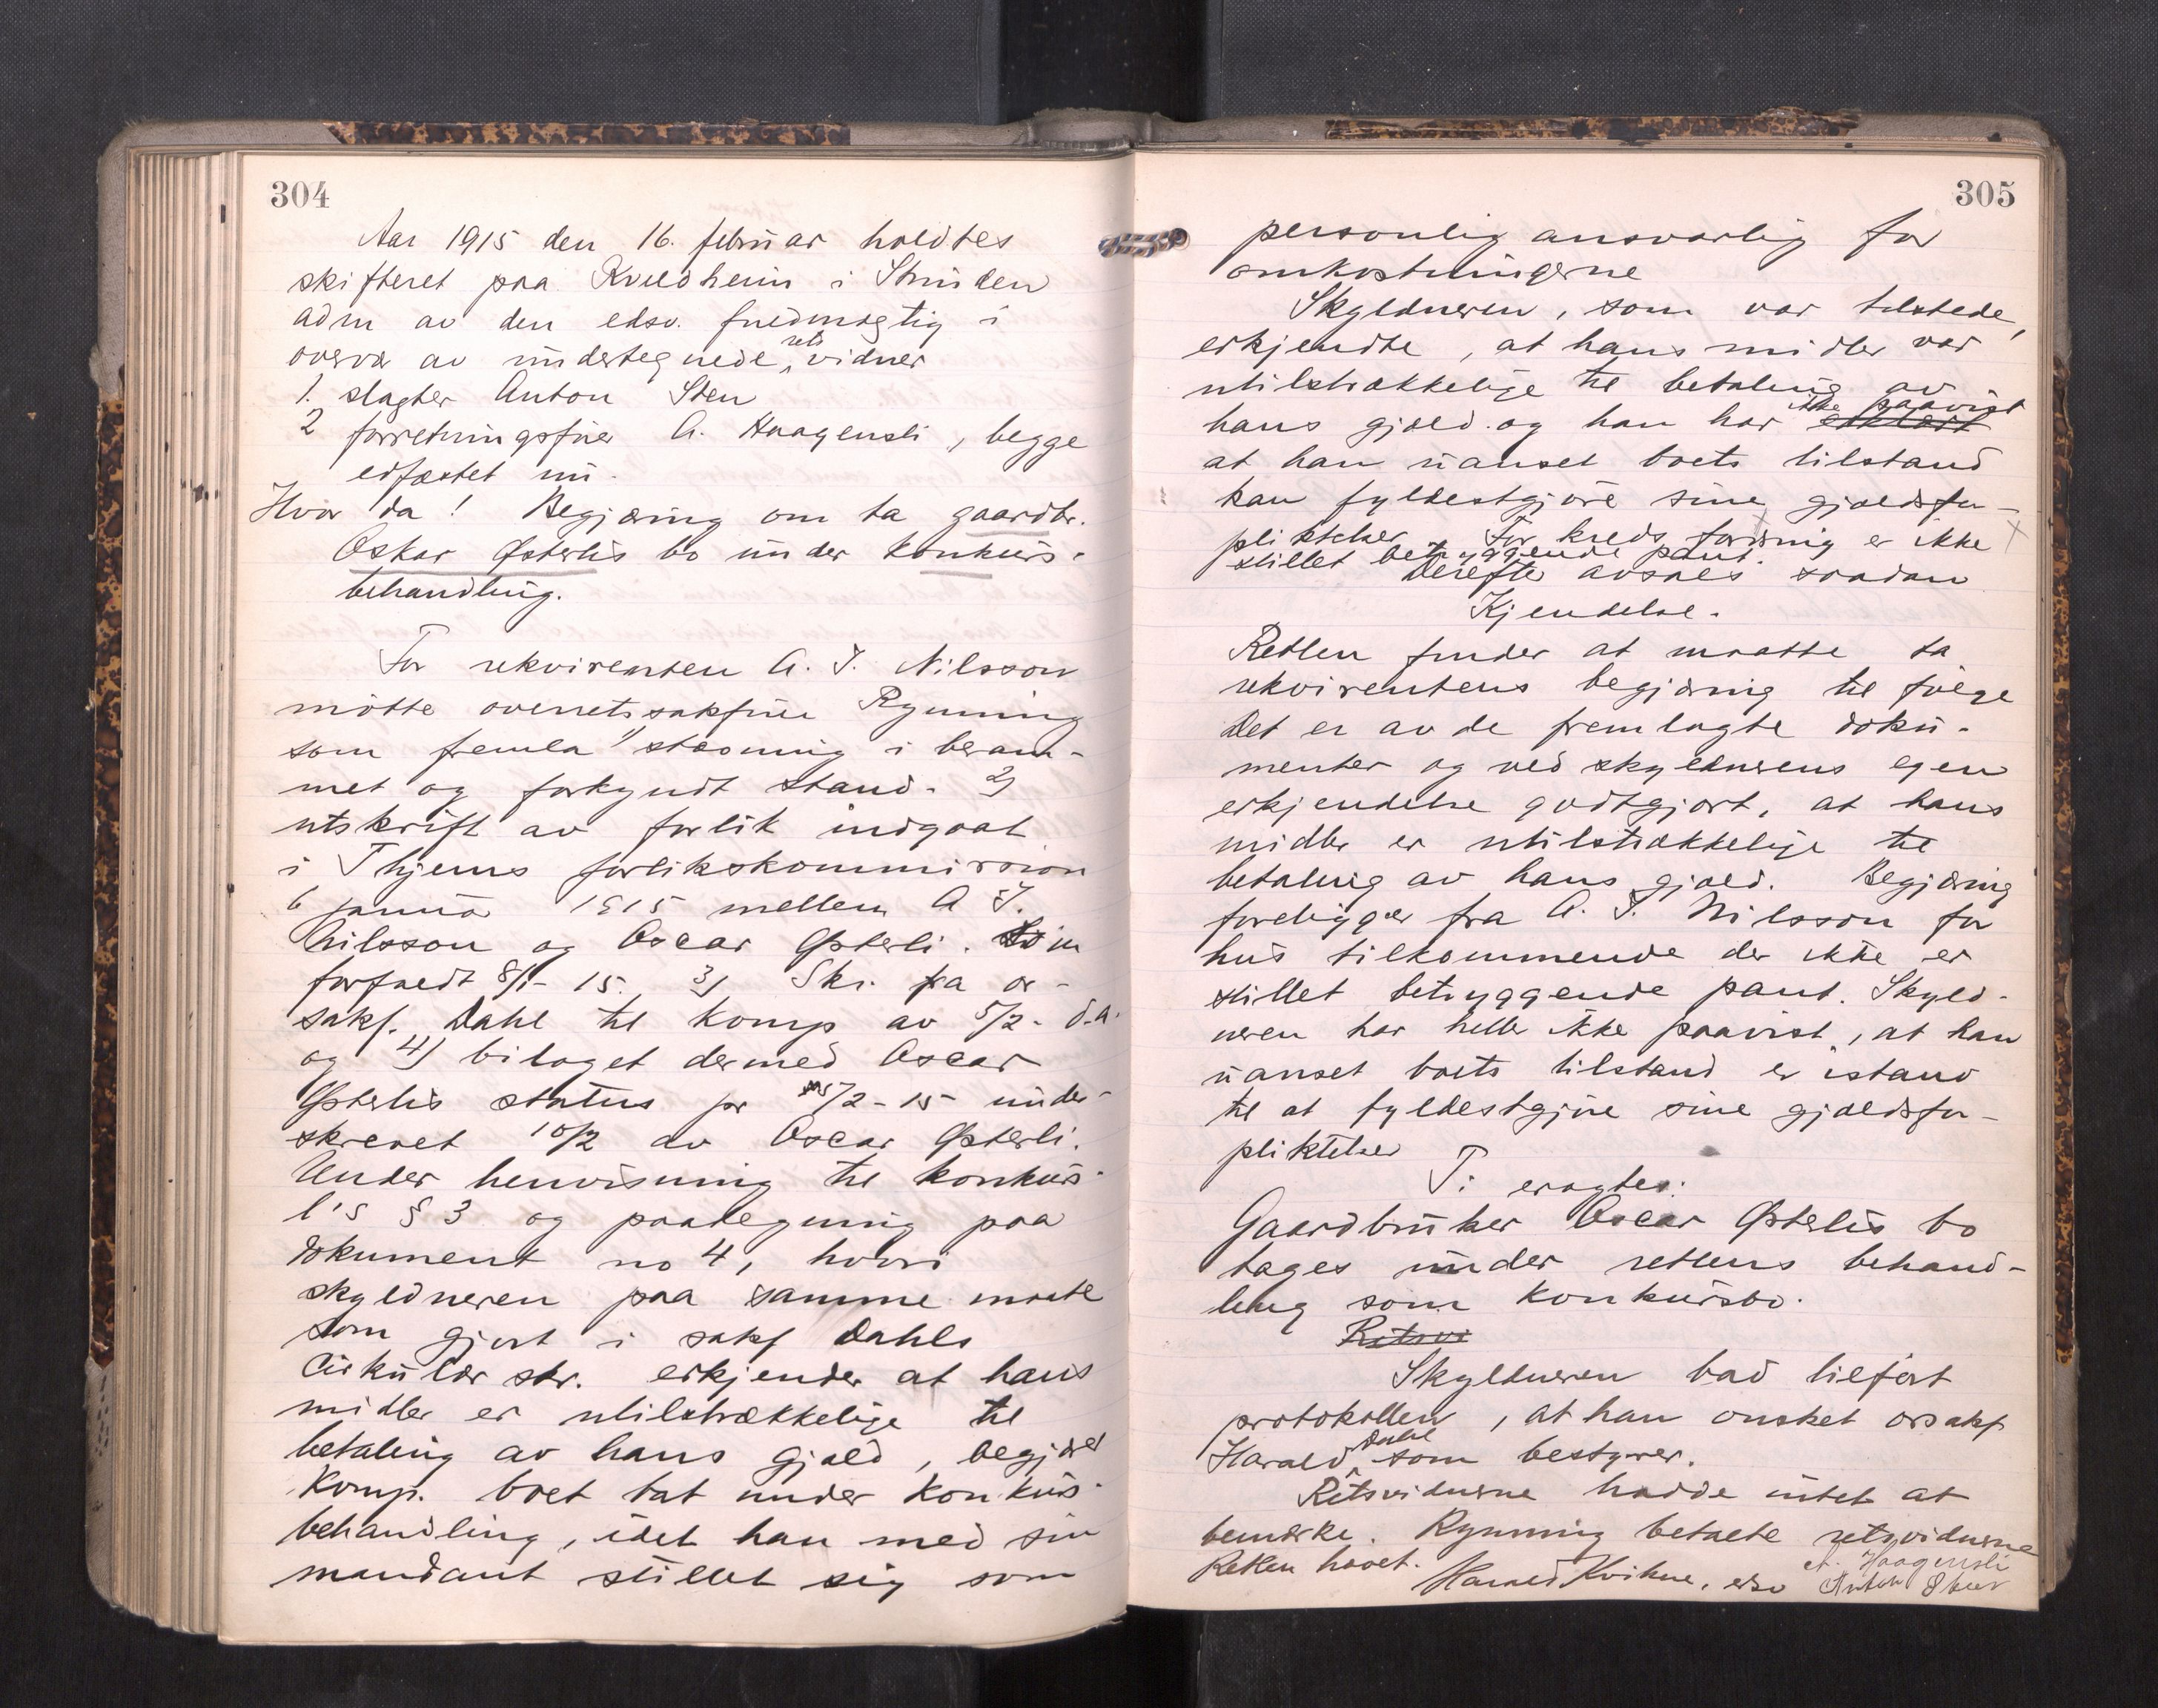 304
Aar 1915 den 16. februar holdtes
skifteret paa Kveldheim i Strinden
adm av den edsv. fuldmægtig i
overvær av undertegnede rets vidner
1. slagter Anton Sten
2 forretningsfører A. Haagensli, begge
edfæstet nu.
Hvor da! Begjæring om ta gaardbr.
Oskar Østerlis bo under konkurs-
behandling.
For rekvirenten A. J. Nilsson
møtte overretssakfører Rynning
som fremla 1) stævning i beram-
met og forkyndt stand. 2)
utskrift av forlik indgaat
i Thjems forlikskommission
6 januar 1915 mellem A J.
Nilsson og Oscar Østerli.
forfaldt 8/1-15. 3) Skr. fra or-
sakf. Dahl til komp av 5/2- d.a.
og 4) bilaget dermed Oscar
Østerlis status pr 5/2-15 under-
skrevet 10/2 av Oscar Østerli.
Under henvisning til konkurs-
l's § 3 og paategning paa
dokument no 4, hvori
skyldneren paa samme maate
som gjort i sakf Dahls
Cirkulær skr. erkjender at hans
midler er utilstrækkelige til
betaling av hans gjæld, begjæret
Komp. boet tat under konkurs-
behandling, idet han med sin
mandant stillet sig som
305
personlig ansvarlig for
omkostningerne
Skyldneren, som var tilstede,
erkjendte, at hans midler var
utilstrækkelige til betaling av
hans gjæld. og han har ikke paavist
at han uanset boets tilstand
kan fyldestgjøre sine gjældsfor-
pliktelser. For kreds. fordring er ikke
stillet betryggende pant.
Derefter avsaes saadan
Kjendelse.
Retten finder at maatte ta
rekvirentens begjæring til følge
Det er av de fremlagte doku-
menter og ved skyldnerens egen
erkjendelse godtgjort, at hans
midler er utilstrækkelige til
betaling av hans gjæld. Begjæring
foreligger fra A. J. Nilsson for
hvis tilkommende der ikke er
stillet betryggende pant. Skyld-
neren har heller ikke paavist, at han
uanset boets tilstand er istand
til at fyldestgjøre sine gjældsfor-
pliktelser
T: eragtes:
Gaardbruker Oscar Østerlis bo
tages under rettens behand-
ling som konkursbo.
Retsvi
Skyldneren bad tilført
protokollen, at han ønsket orsakf
Harald Dahl som bestyrer.
Retsvidnerne hadde intet at
bemærke. Rynning betalte retsvidnerne
Retten hævet.
Harald Kvikne, edsv
A. Haagensli
Anton Steen